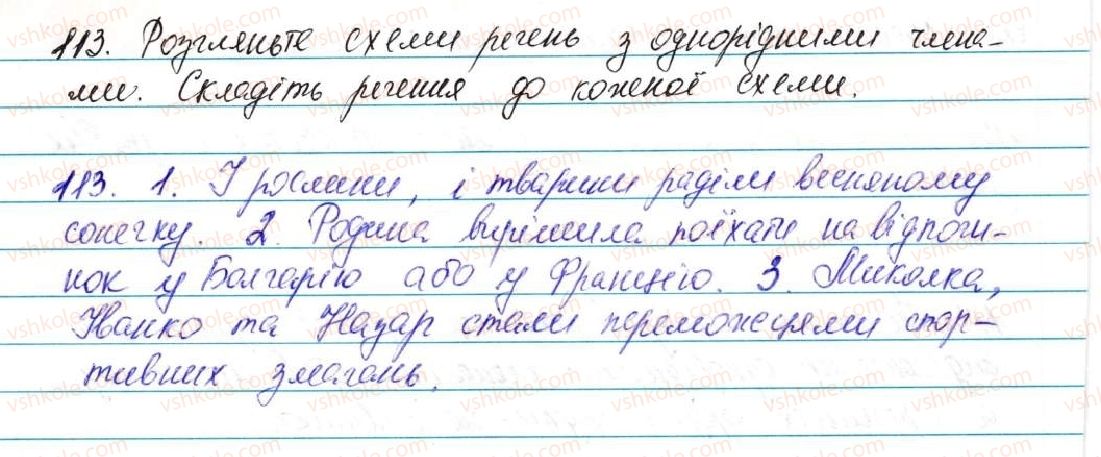 113. Розгляньте схеми речень з однорідними члена-
ми. Складіть речення до кожної схеми.
113. 1. І рослини, і тварини раділи весняному
сонечку. 2. Родина вирішила поїхати на відпочи-
нок у Болгарію або у Францію. 3. Миколка,
Іванко та Назар стали переможцями спор-
тивних змагань.